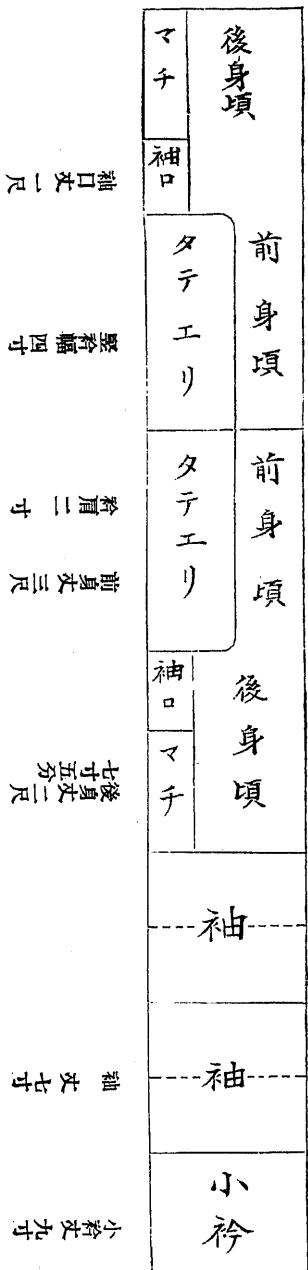 後身頃
マチ
袖口
前身頃
タテエリ
前身頃
タテエリ
後身頃
袖口
マチ
袖
袖
小衿
袖口丈一尺
竪衿幅四寸
衿肩二寸
前身丈三尺
後身丈二尺
七寸五分
袖丈七寸
小衿丈九寸